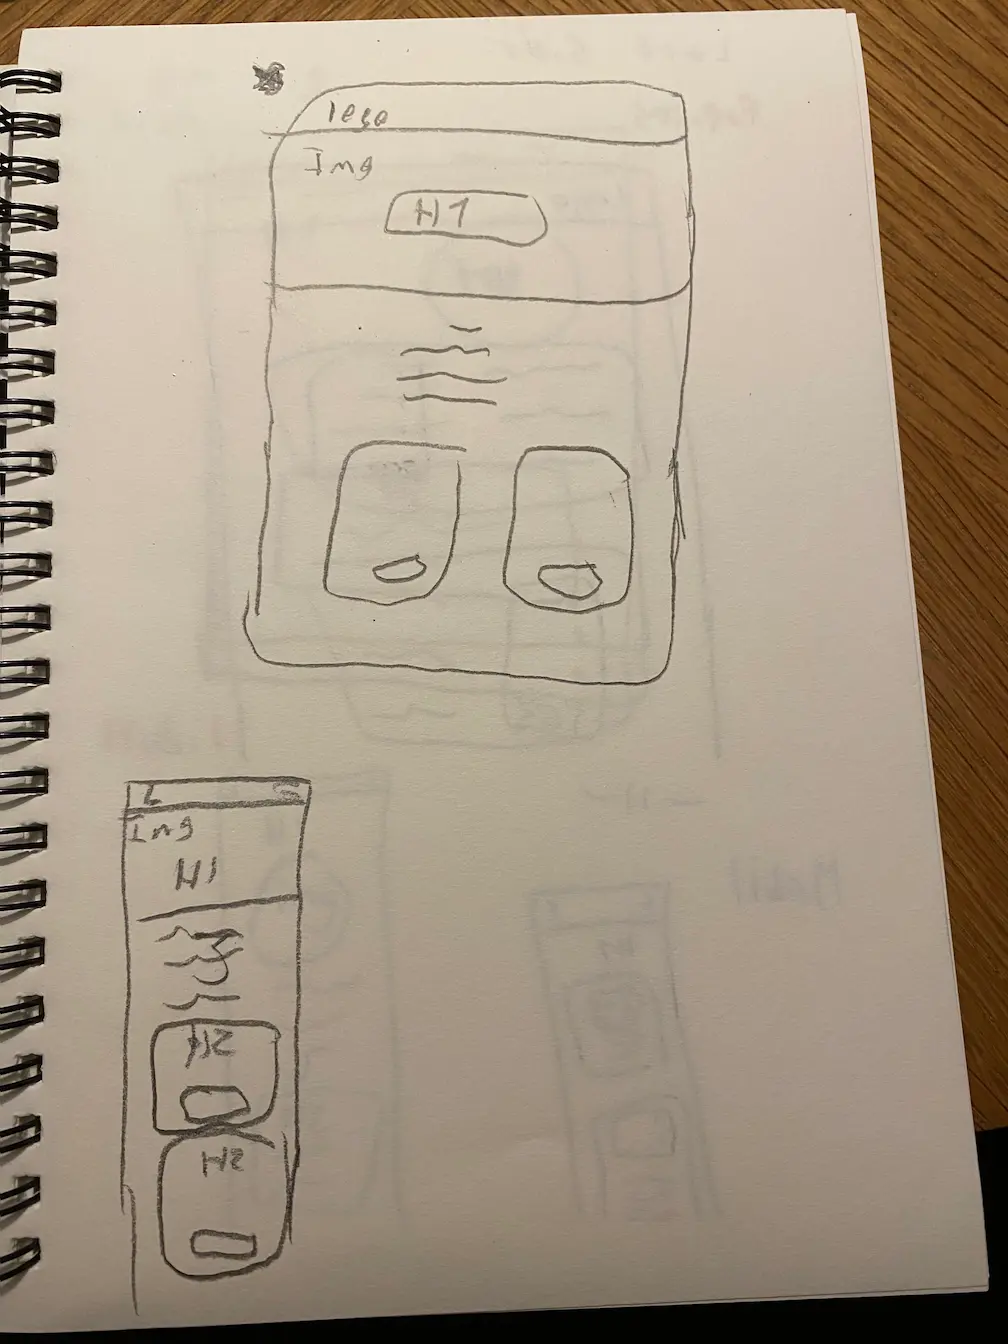 logo
Img
H1
L
Img
H1
H2
H2